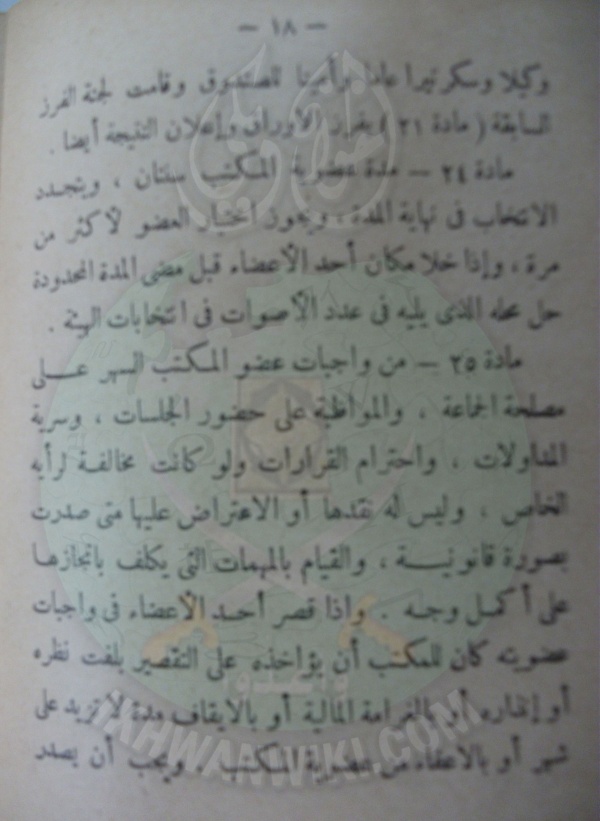 — ١٨ —
وكيلا وسكرتيرا عاما وأمينا للصندوق وقامت لجنة الفرز
السابقة ( مادة ٢١ ) بفرز الأوراق وإعلان النتيجة أيضا .
مادة ٢٤ — مدة عضوية المكتب سنتان ، ويتجدد
الانتخاب فى نهاية المدة ، ويجوز اختيار العضو لأكثر من
مرة ، وإذا خلا مكان أحد الأعضاء قبل مضى المدة المحدودة
حل محله الذى يليه فى عدد الأصوات فى انتخابات الهيئة .
مادة ٢٥ — من واجبات عضو المكتب السهر عــلى
مصلحة الجماعة ، والمواظبة على حضور الجلسات ، وسرية
المداولات ، واحترام القرارات ولو كانت مخالفـة لرأيه
الخاص ، وليس له نقدها أو الاعتراض عليها متى صدرت
بصورة قانونيـــة ، والقيام بالمهمات التى يكلف بانجازها
على أكمـل وجـه . واذا قصر أحـد الأعضاء فى واجبات
عضويته كان للمكتب أن يؤاخذه على التقصير بلفت نظره
أو إنذاره أو بالغرامة المالية أو بالايقاف مدة لا تزيد على
شهر أو بالاعفاء من عضوية المكتب . ويجب أن يصدر
وأعدوا
IKHWANWIKI.COM